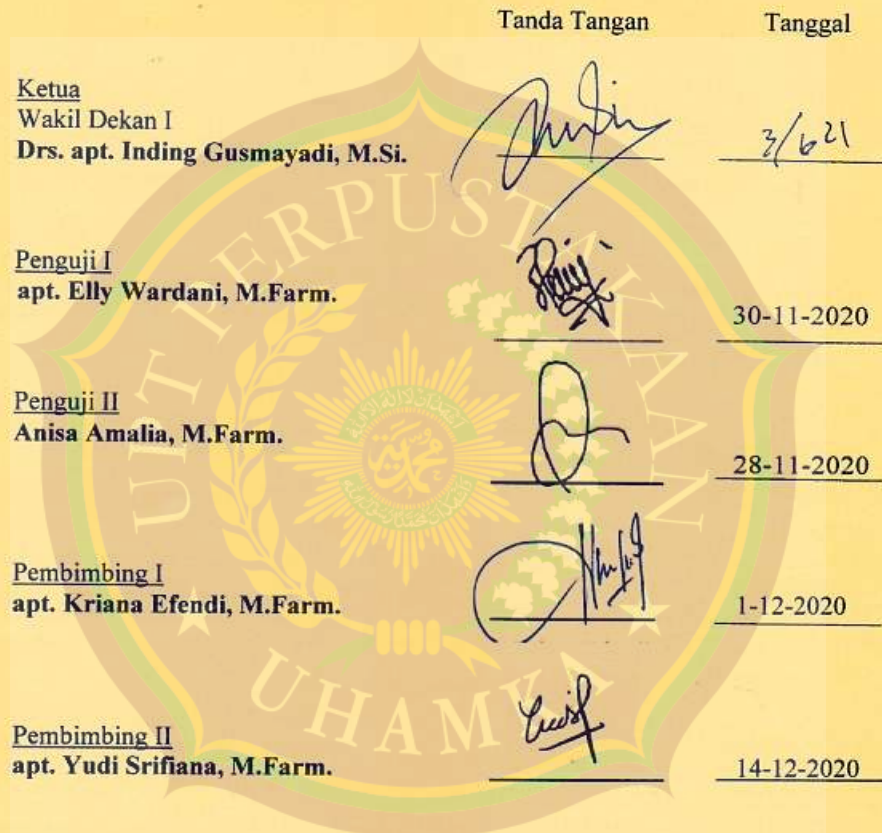 Tanda Tangan Tanggal
Ketua
Wakil Dekan I
Drs. apt. Inding Gusmayadi, M.Si.
3/6 21
Penguji I
apt. Elly Wardani, M.Farm.
30-11-2020
Penguji II
Anisa Amalia, M.Farm.
28-11-2020
Pembimbing I
apt. Kriana Efendi, M.Farm.
1-12-2020
Pembimbing II
apt. Yudi Srifiana, M.Farm.
14-12-2020
UPT PERPUSTAKAAN
UHAMKA